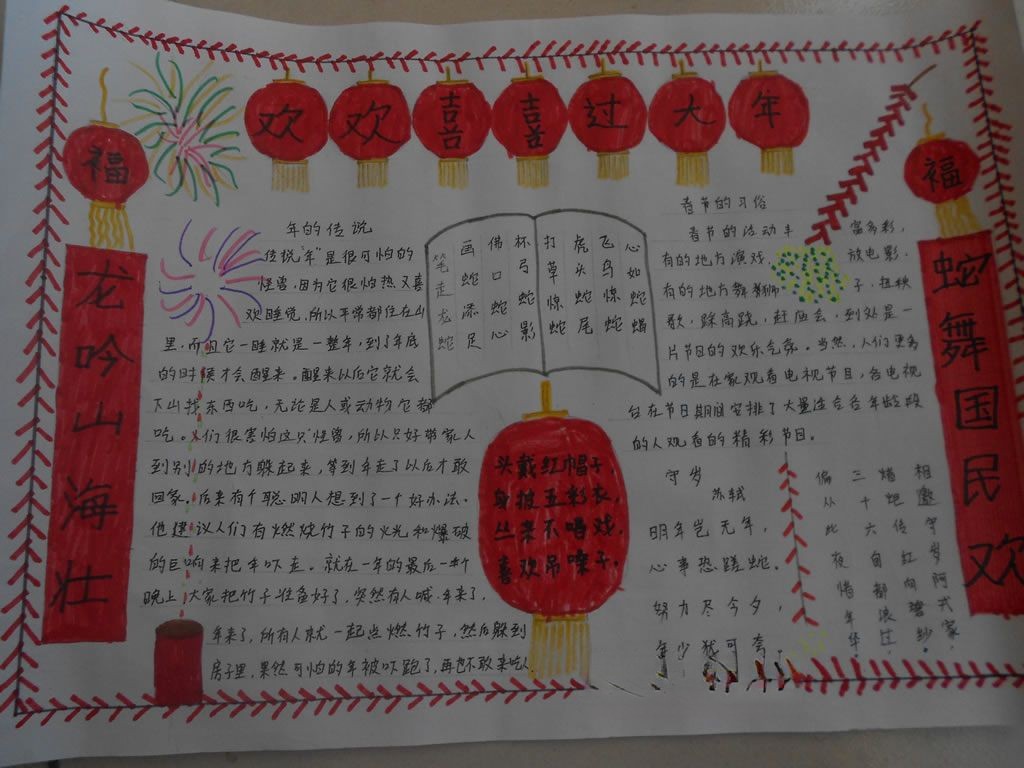 欢欢喜喜过大年
福
福
龙吟山海壮
蛇舞国民欢
年的传说
传说“年”是很可怕的
怪兽，因为它很怕热又喜
欢睡觉，所以平常都住在山
里，而且它一睡就是一整年，到了年底
的时候才会醒来。醒来以后它就会
下山找东西吃，无论是人或动物它都
吃。人们很害怕这只怪兽，所以只好带家人
到别的地方躲起来，等到年走了以后才敢
回家。后来有个聪明人想到了一个好办法。
他建议人们有燃烧竹子的火光和爆破
的巨响来把年吓走。就在一年的最后一个
晚上，大家把竹子准备好了，突然有人喊，年来了，
年来了，所有人就一起点燃竹子，然后躲到
房子里，果然可怕的年被吓跑了，再也不敢来吃人
笔走龙蛇
画蛇添足
佛口蛇心
杯弓蛇影
打草惊蛇
虎头蛇尾
飞鸟惊蛇
心如蛇蝎
头戴红帽子，
身披五彩衣，
丛来不唱戏，
喜欢吊嗓子，
春节的习俗
春节的活动丰富多彩，
有的地方演戏，放电影，
有的地方舞狮子，扭秧
歌，踩高跷，赶庙会，到处是一
片节日的欢乐气象。当然，人们更多
的是在家观看电视节目，各电视
台在节日期间安排了大量适合各年龄段
的人观看的精彩节目。
守岁
苏轼
明年岂无年，
心事恐蹉蛇。
努力尽今夕，
年少犹可夸。
相邀守岁阿戎家，
蜡炬传红向碧纱，
三十六自都浪过，
偏从此夜惜年华。